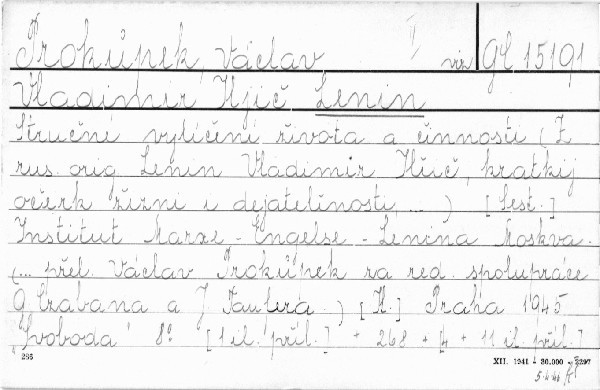 Prokůpek, Václav II viz gC 15191
Vladimir Iljič Lenin
Stručné vylíčení života a činnosti (Z
rus. orig. Lenin Vladimir Iljič, kratkij
očerk žizni i dejatelinosti, ... ) [Sest.]
Institut Marxe - Engelse - Lenina Moskva.
(... přel. Václav Prokůpek za red. spolupráce
O. Czabana a J. Taufera.) [K.] Praha 1945
"Svoboda" 8° [1 il. příl.] + 268 + [4 + 11 il. příl.]
286 XII. 1941 - 30.000 - 2297